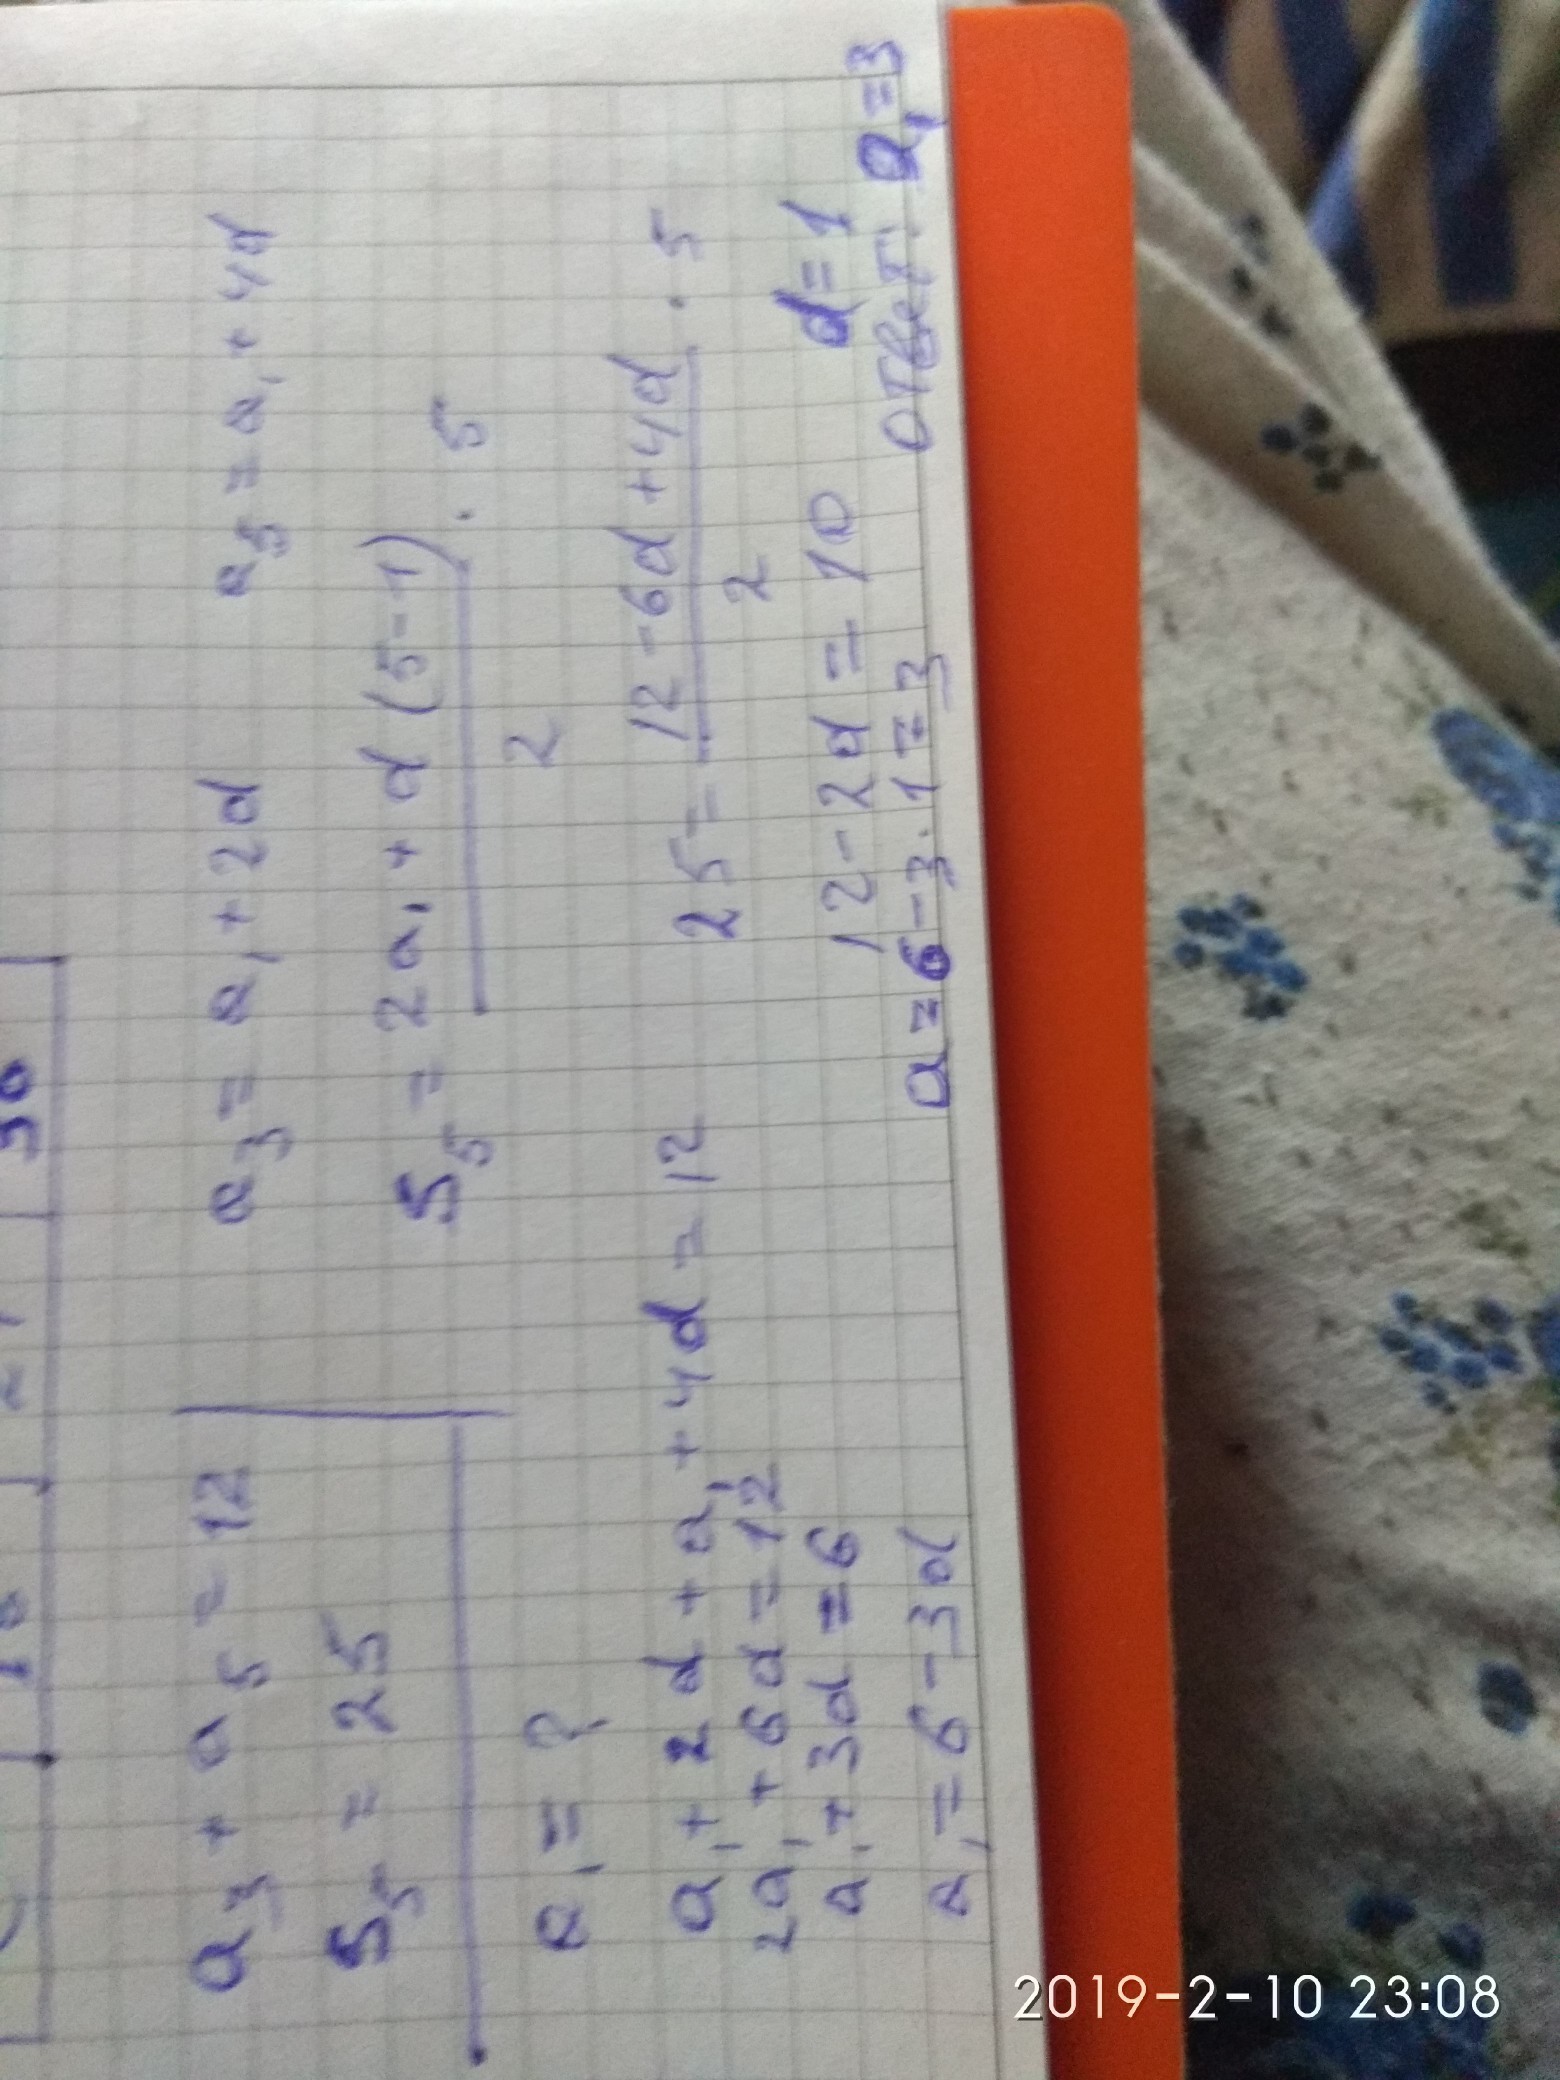 30
a₃ + a₅ = 12
S₅ = 25
a₁ = ?
a₃ = a₁ + 2d a₅ = a₁ + 4d
S₅ = 2a₁ + d(5-1) · 5
2
a₁ + 2d + a₁ + 4d = 12
2a₁ + 6d = 12
a₁ + 3d = 6
a₁ = 6 - 3d
25 = 12 - 6d + 4d · 5
2
12 - 2d = 10 d = 1
a = 6 - 3 · 1 = 3 ответ: a₁ = 3
2019-2-10 23:08